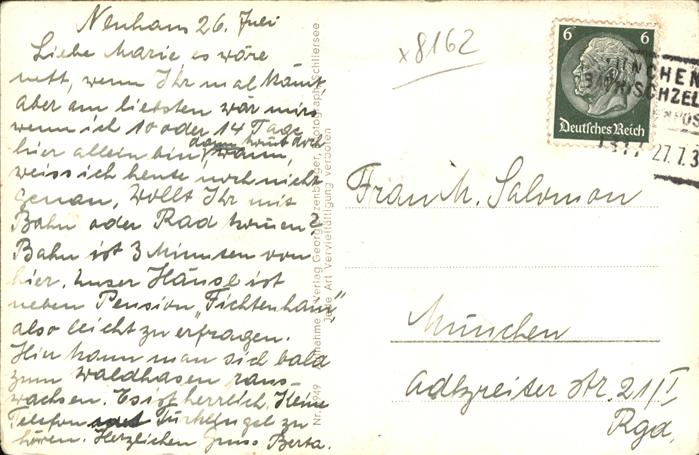 Neuhaus 26. Juli
Liebe Marie, es wäre
nett, wenn Ihr mal kämt
aber am liebsten wär mirs
wenn ich 10 oder 14 Tage
hier allein bin, dann
weiss ich heute noch nicht
genau, Wollt Ihr mit
Bahn oder Rad
Bahn ist 3 Minuten von
hier. Unser Häusl ist
neben Pension "Fichtenhain"
also leicht zu erfragen.
Hier kann man sich bald
zum Waldhasen raus-
wachsen. Es ist herrlich. Keine
Telefon Türklingel zu
hören. Herzlichen Gruss Berta.
x8162
6 6
Deutsches Reich
MÜNCHEN
27.7.3
Frau M. Salomon
München
Adlzreiter str. 21/I
Rgb.
Verlag Georg
Schliersee
Jede Art Vervielfältigung verboten